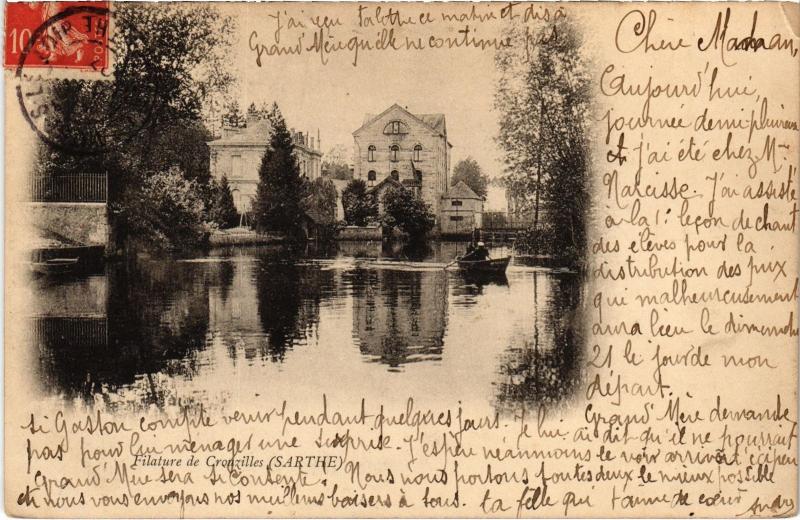 J'ai reçu ta lettre ce matin et dis à
Grand'Mère qu'elle ne continue pas
10
Chère Maman,
Aujourd'hui,
journée demi pluvieuse
et j'ai été chez Mr
Narcisse. J'ai assisté
à la 1e leçon de chant
des élèves pour la
distribution des prix
qui malheureusement
aura lieu le dimanche
21 le jour de mon
départ.
Grand'Mère demande
si Gaston compte venir pendant quelques jours. Je lui ai dit qu'il ne pourrait
pas pour lui ménager une surprise. J'espère néanmoins le voir arriver
Grand'Mère sera si contente. Nous nous portons toutes deux le mieux possible
et nous vous envoyons nos meilleurs baisers à tous. ta fille qui t'aime de cœur
Filature de Cronzilles (SARTHE)